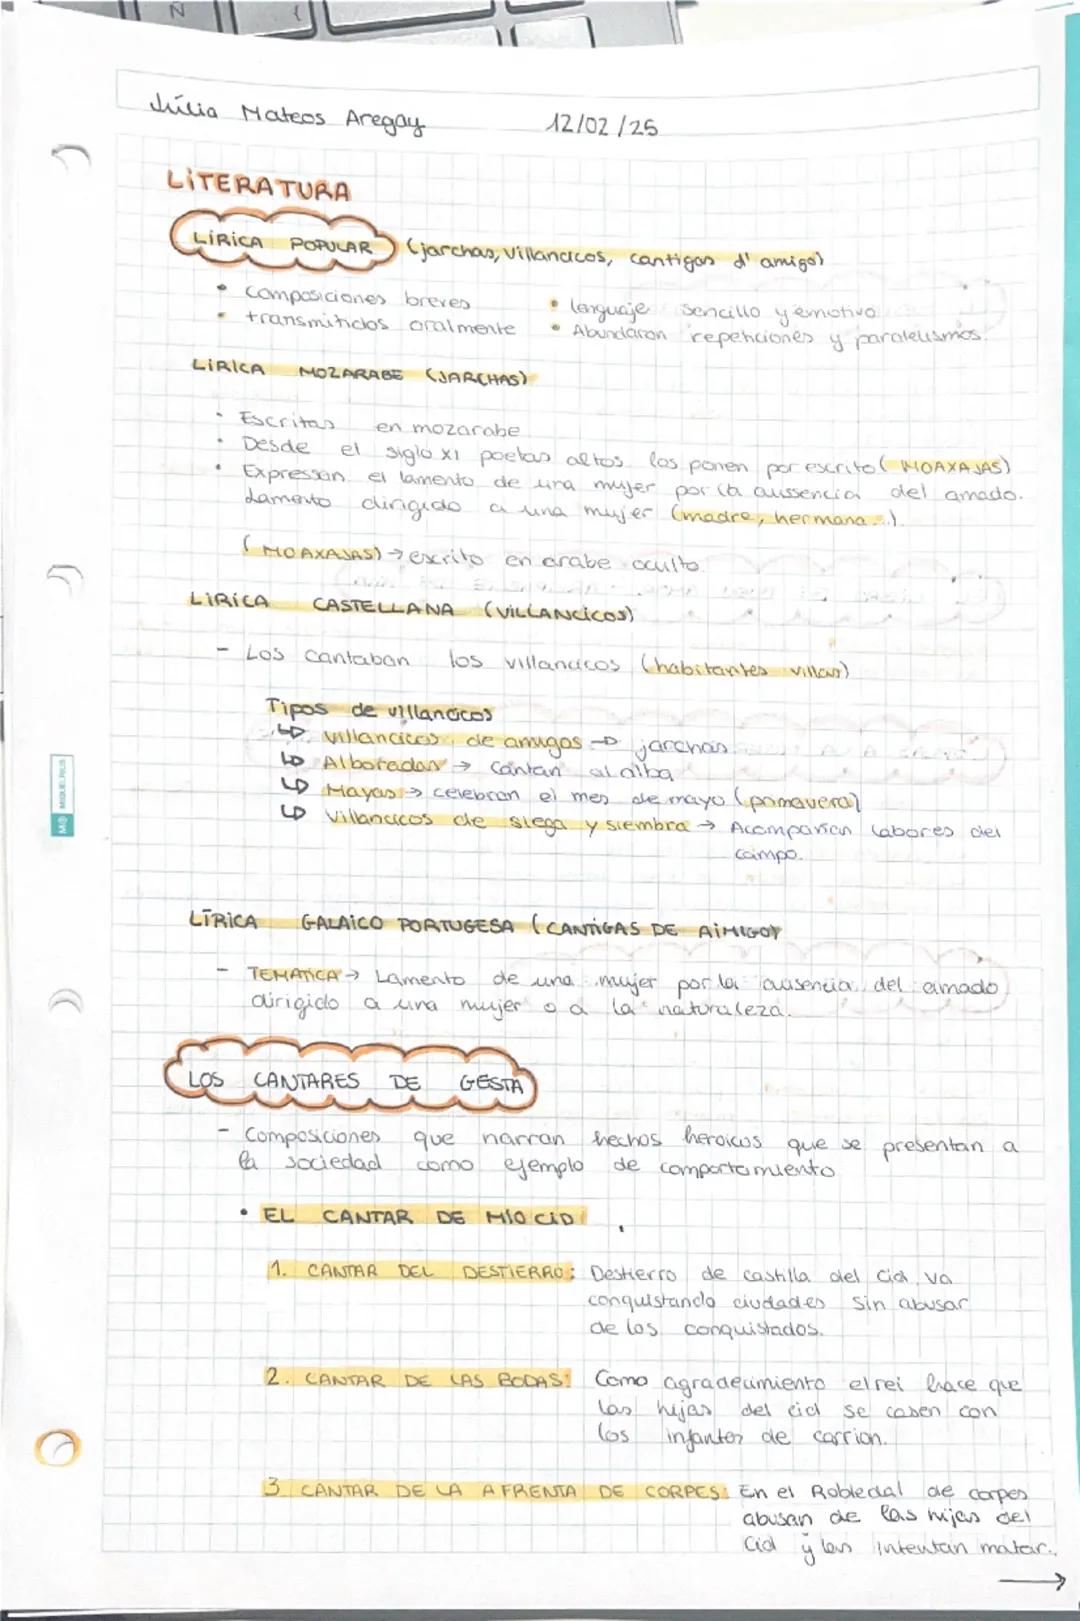 Júlia Mateos Aregay 12/02/25
LITERATURA
LÍRICA POPULAR (jarchas, villancicos, cantigas d'amigo)
• composiciones breves • lenguaje sencillo y emotivo
• transmitidos oralmente • Abundaron repeticiones y paralelismos.
LIRICA MOZARABE (JARCHAS)
• Escritas en mozarabe
• Desde el siglo XI poetas altos las ponen por escrito (MOAXAJAS)
• Expressan el lamento de una mujer por la aussencia del amado.
Lamento dirigido a una mujer (madre, hermana...)
(MOAXAJAS) → escrito en arabe oculto
LIRICA CASTELLANA (VILLANCICOS)
- Los cantaban los villancicos (habitantes villas)
Tipos de villancicos
↳ villancicos de amigos → jarchas
↳ Alboradas → cantan al alba
↳ Mayas → celebran el mes de mayo (primavera)
↳ villancicos de siega y siembra → Acompañan labores del
campo.
LÍRICA GALAICO PORTUGESA (CANTIGAS DE AIMIGO)
- TEMATICA → Lamento de una mujer por la ausencia del amado
dirigido a una mujer o a la naturaleza.
LOS CANTARES DE GESTA
- Composiciones que narran hechos heroicos que se presentan a
la sociedad como ejemplo de comportamiento
• EL CANTAR DE MIO CID
1. CANTAR DEL DESTIERRO: Destierro de castilla del Cid, va
conquistando ciudades sin abusar
de los conquistados.
2. CANTAR DE LAS BODAS: Como agradecimiento el rei hace que
las hijas del cid se casen con
los infantes de carrion.
3 CANTAR DE LA AFRENTA DE CORPES: En el Robledal de corpes
abusan de las hijas del
Cid y las intentan matar.
→
MIQUELRIUS